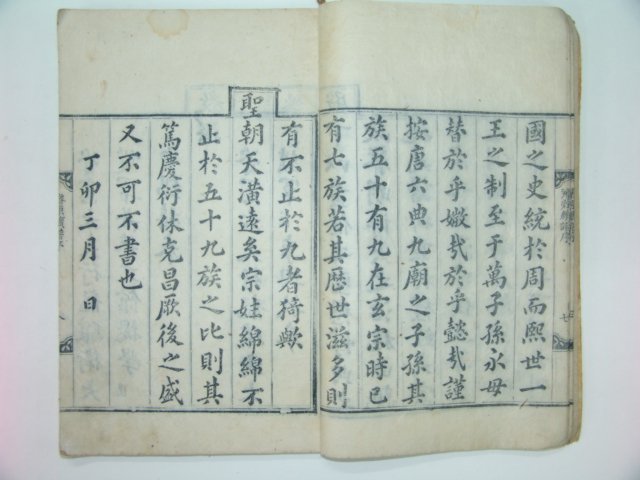 國之史統於周而熙世一
王之制至于萬子孫永毋
替於乎嫩㢤於乎懿㢤謹
按唐六典九廟之子孫其
族五十有九在玄宗時已
有七族若其歷世滋多則
有不止於九者猗歟
聖朝天潢遠矣宗娃綿綿不
止於五十九族之比則其
篤慶衍休克昌厥後之盛
又不可不書也
丁卯三月 日